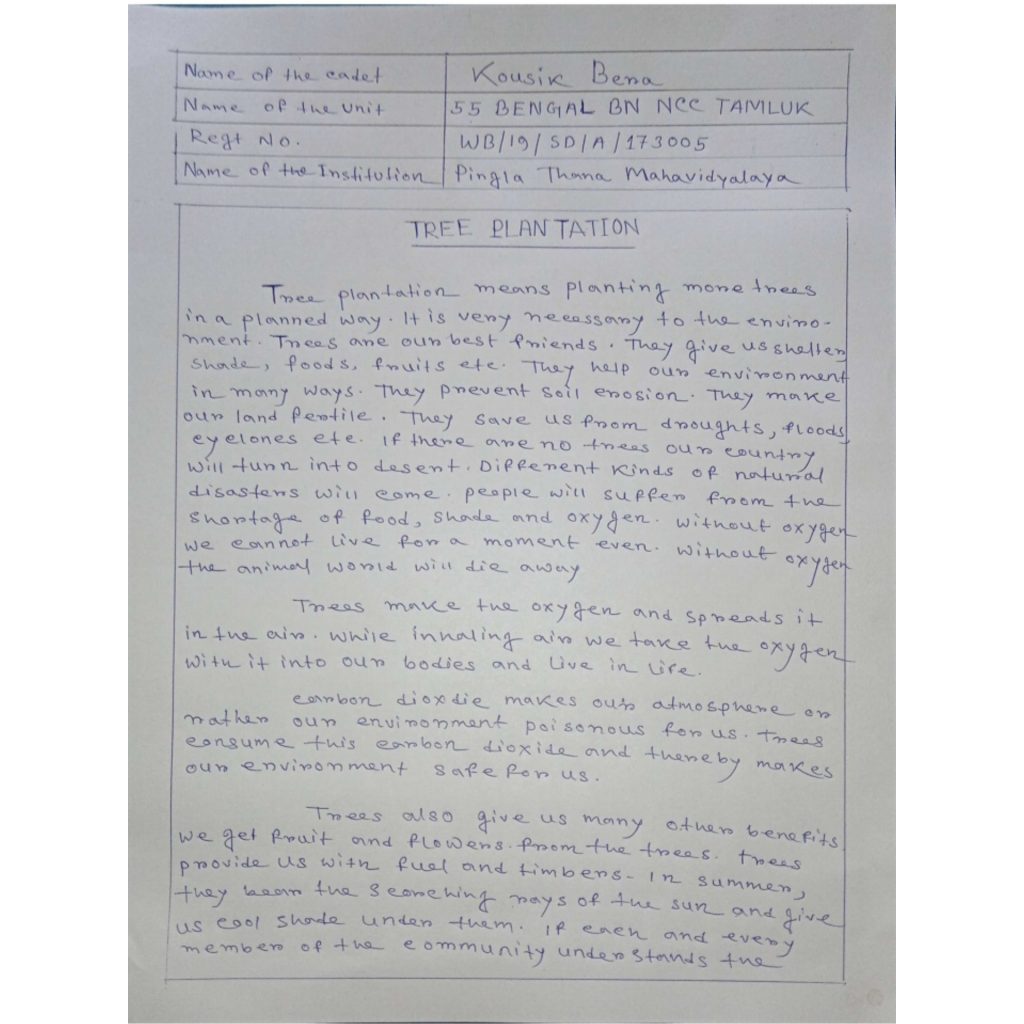 Name of the cadet Kousik Bera
Name of the Unit 55 BENGAL BN NCC TAMLUK
Regt No. WB/19/SD/A/173005
Name of the Institution Pingla Thana Mahavidyalaya
TREE PLANTATION
Tree plantation means planting more trees
in a planned way. It is very necessary to the enviro-
nment. Trees are our best friends. They give us shelter
shade, foods, fruits etc. They help our environment
in many ways. They prevent soil erosion. They make
our land fertile. They save us from droughts, floods,
cyclones etc. If there are no trees our country
will turn into desert. Different kinds of natural
disasters will come. people will suffer from the
shortage of food, shade and oxygen. without oxygen
we cannot live for a moment even. without oxygen
the animal world will die away
Trees make the oxygen and spreads it
in the air. while inhaling air we take the oxygen
with it into our bodies and live in life.
carbon dioxdie makes our atmosphere or
rather our environment poisonous for us. Trees
consume this carbon dioxide and thereby makes
our environment safe for us.
Trees also give us many other benefits
we get fruit and flowers from the trees. trees
provide us with fuel and timbers- In summer,
they bear the scorching rays of the sun and give
us cool shade under them. if each and every
member of the community understands the